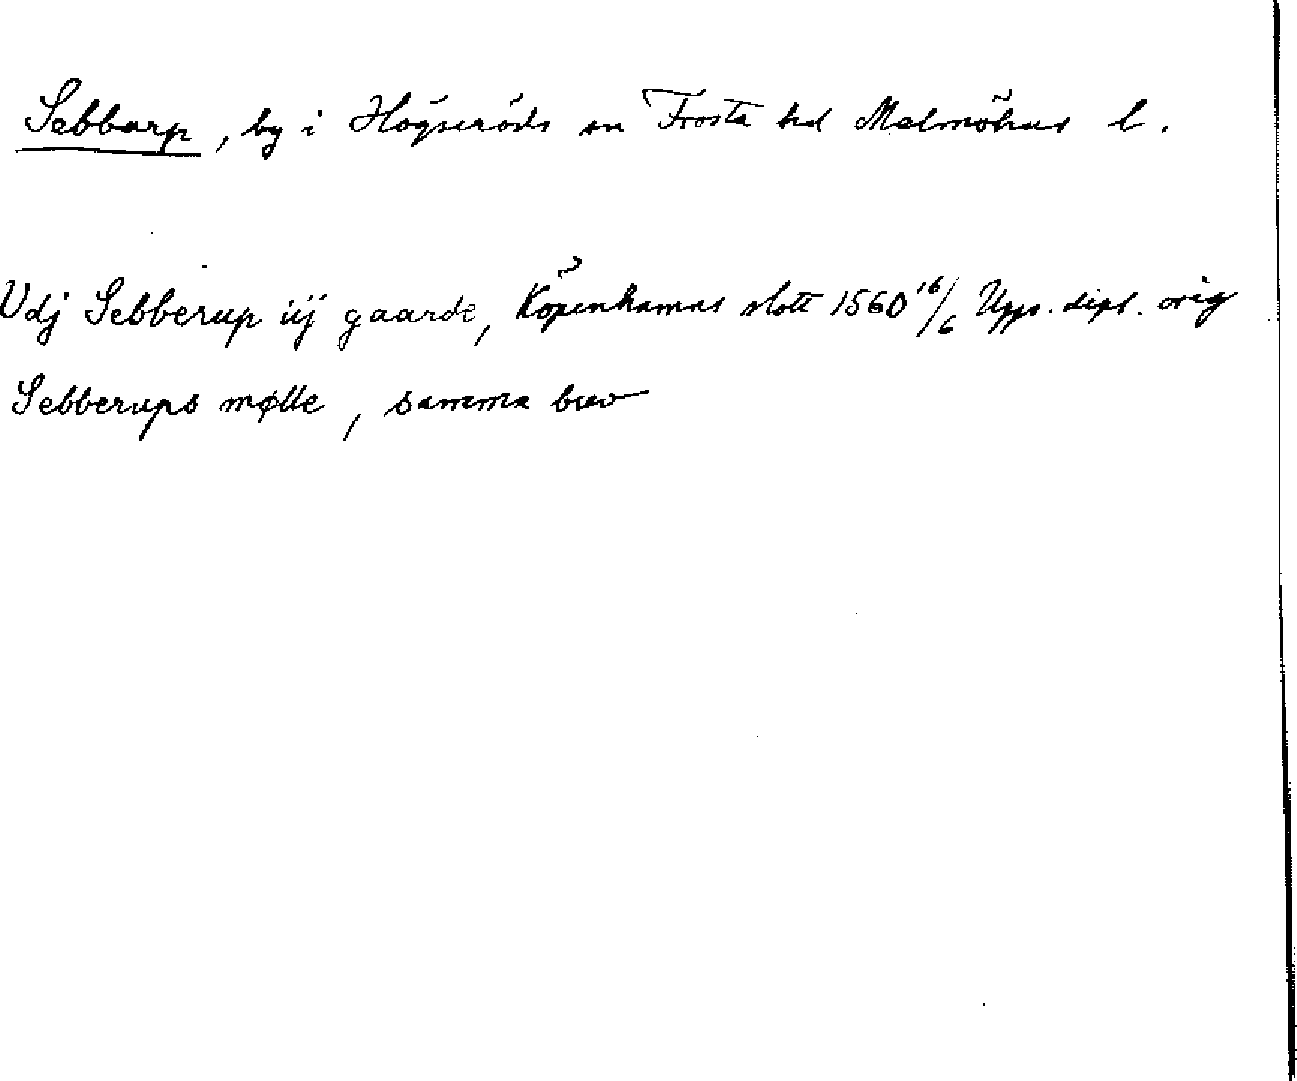 Sebbarp, by i Högseröds sn Frosta hd Malmöhus l.
Udj Sebberup iij gaarde, Köpenhamns slott 1560 16/6 Upps. dipl. orig
Sebberups mølle, samma brev